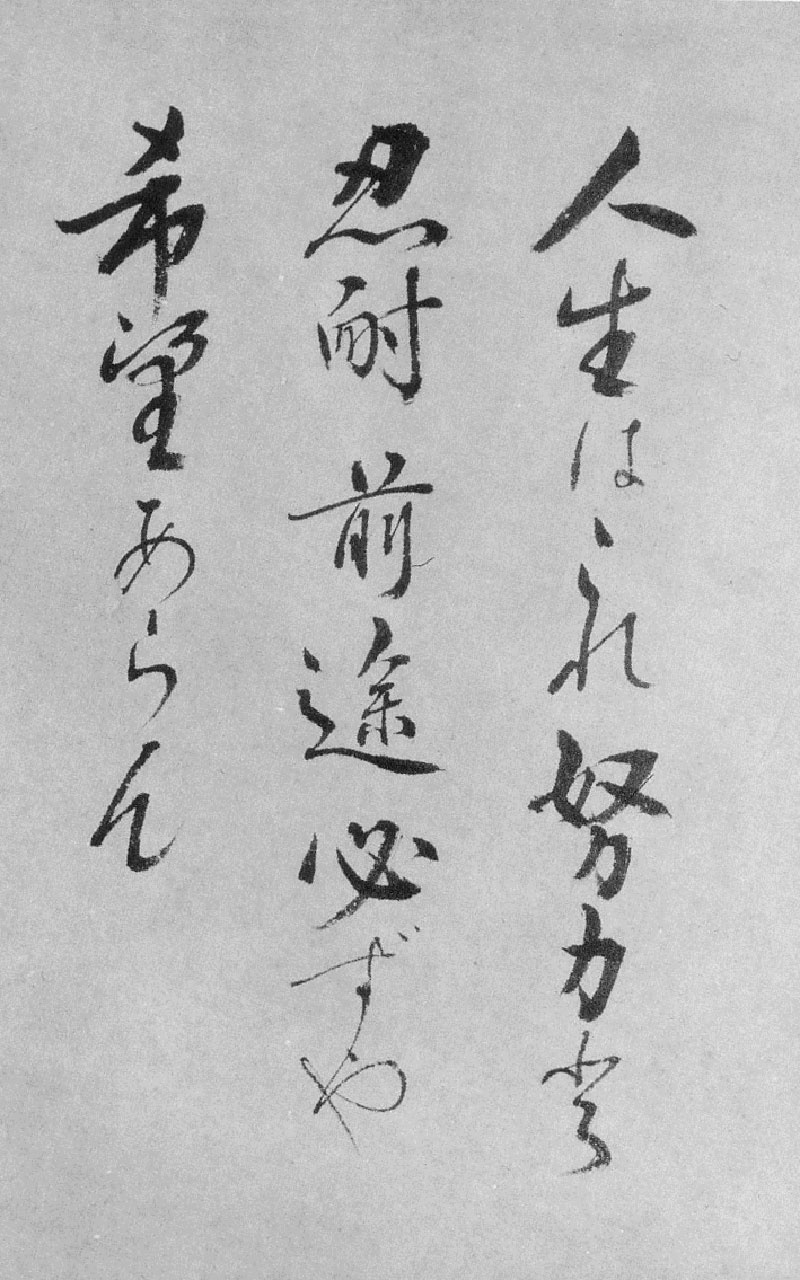 人生は之れ努力と
忍耐前途必ずや
希望あらん